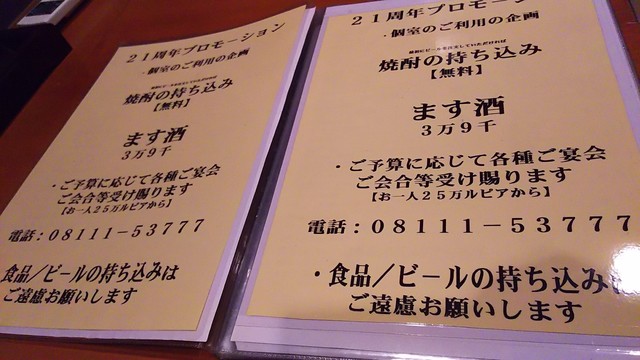 ２１周年プロモーション
・個室のご利用の企画
焼酎の持ち込み
【無料】
ます酒
３万９千
・ご予算に応じて各種ご宴会
ご会合等受け賜ります
【お一人２５万ルピアから】
電話：０８１１１－５３７７７
食品／ビールの持ち込みは
ご遠慮お願いします
２１周年プロモーシ
・個室のご利用の企画
焼酎の持ち込み
【無料】
ます酒
３万９千
・ご予算に応じて各種ご宴会
ご会合等受け賜ります
【お一人２５万ルピアから】
電話：０８１１１－５３７７７
・食品／ビールの持ち込み
ご遠慮お願いします